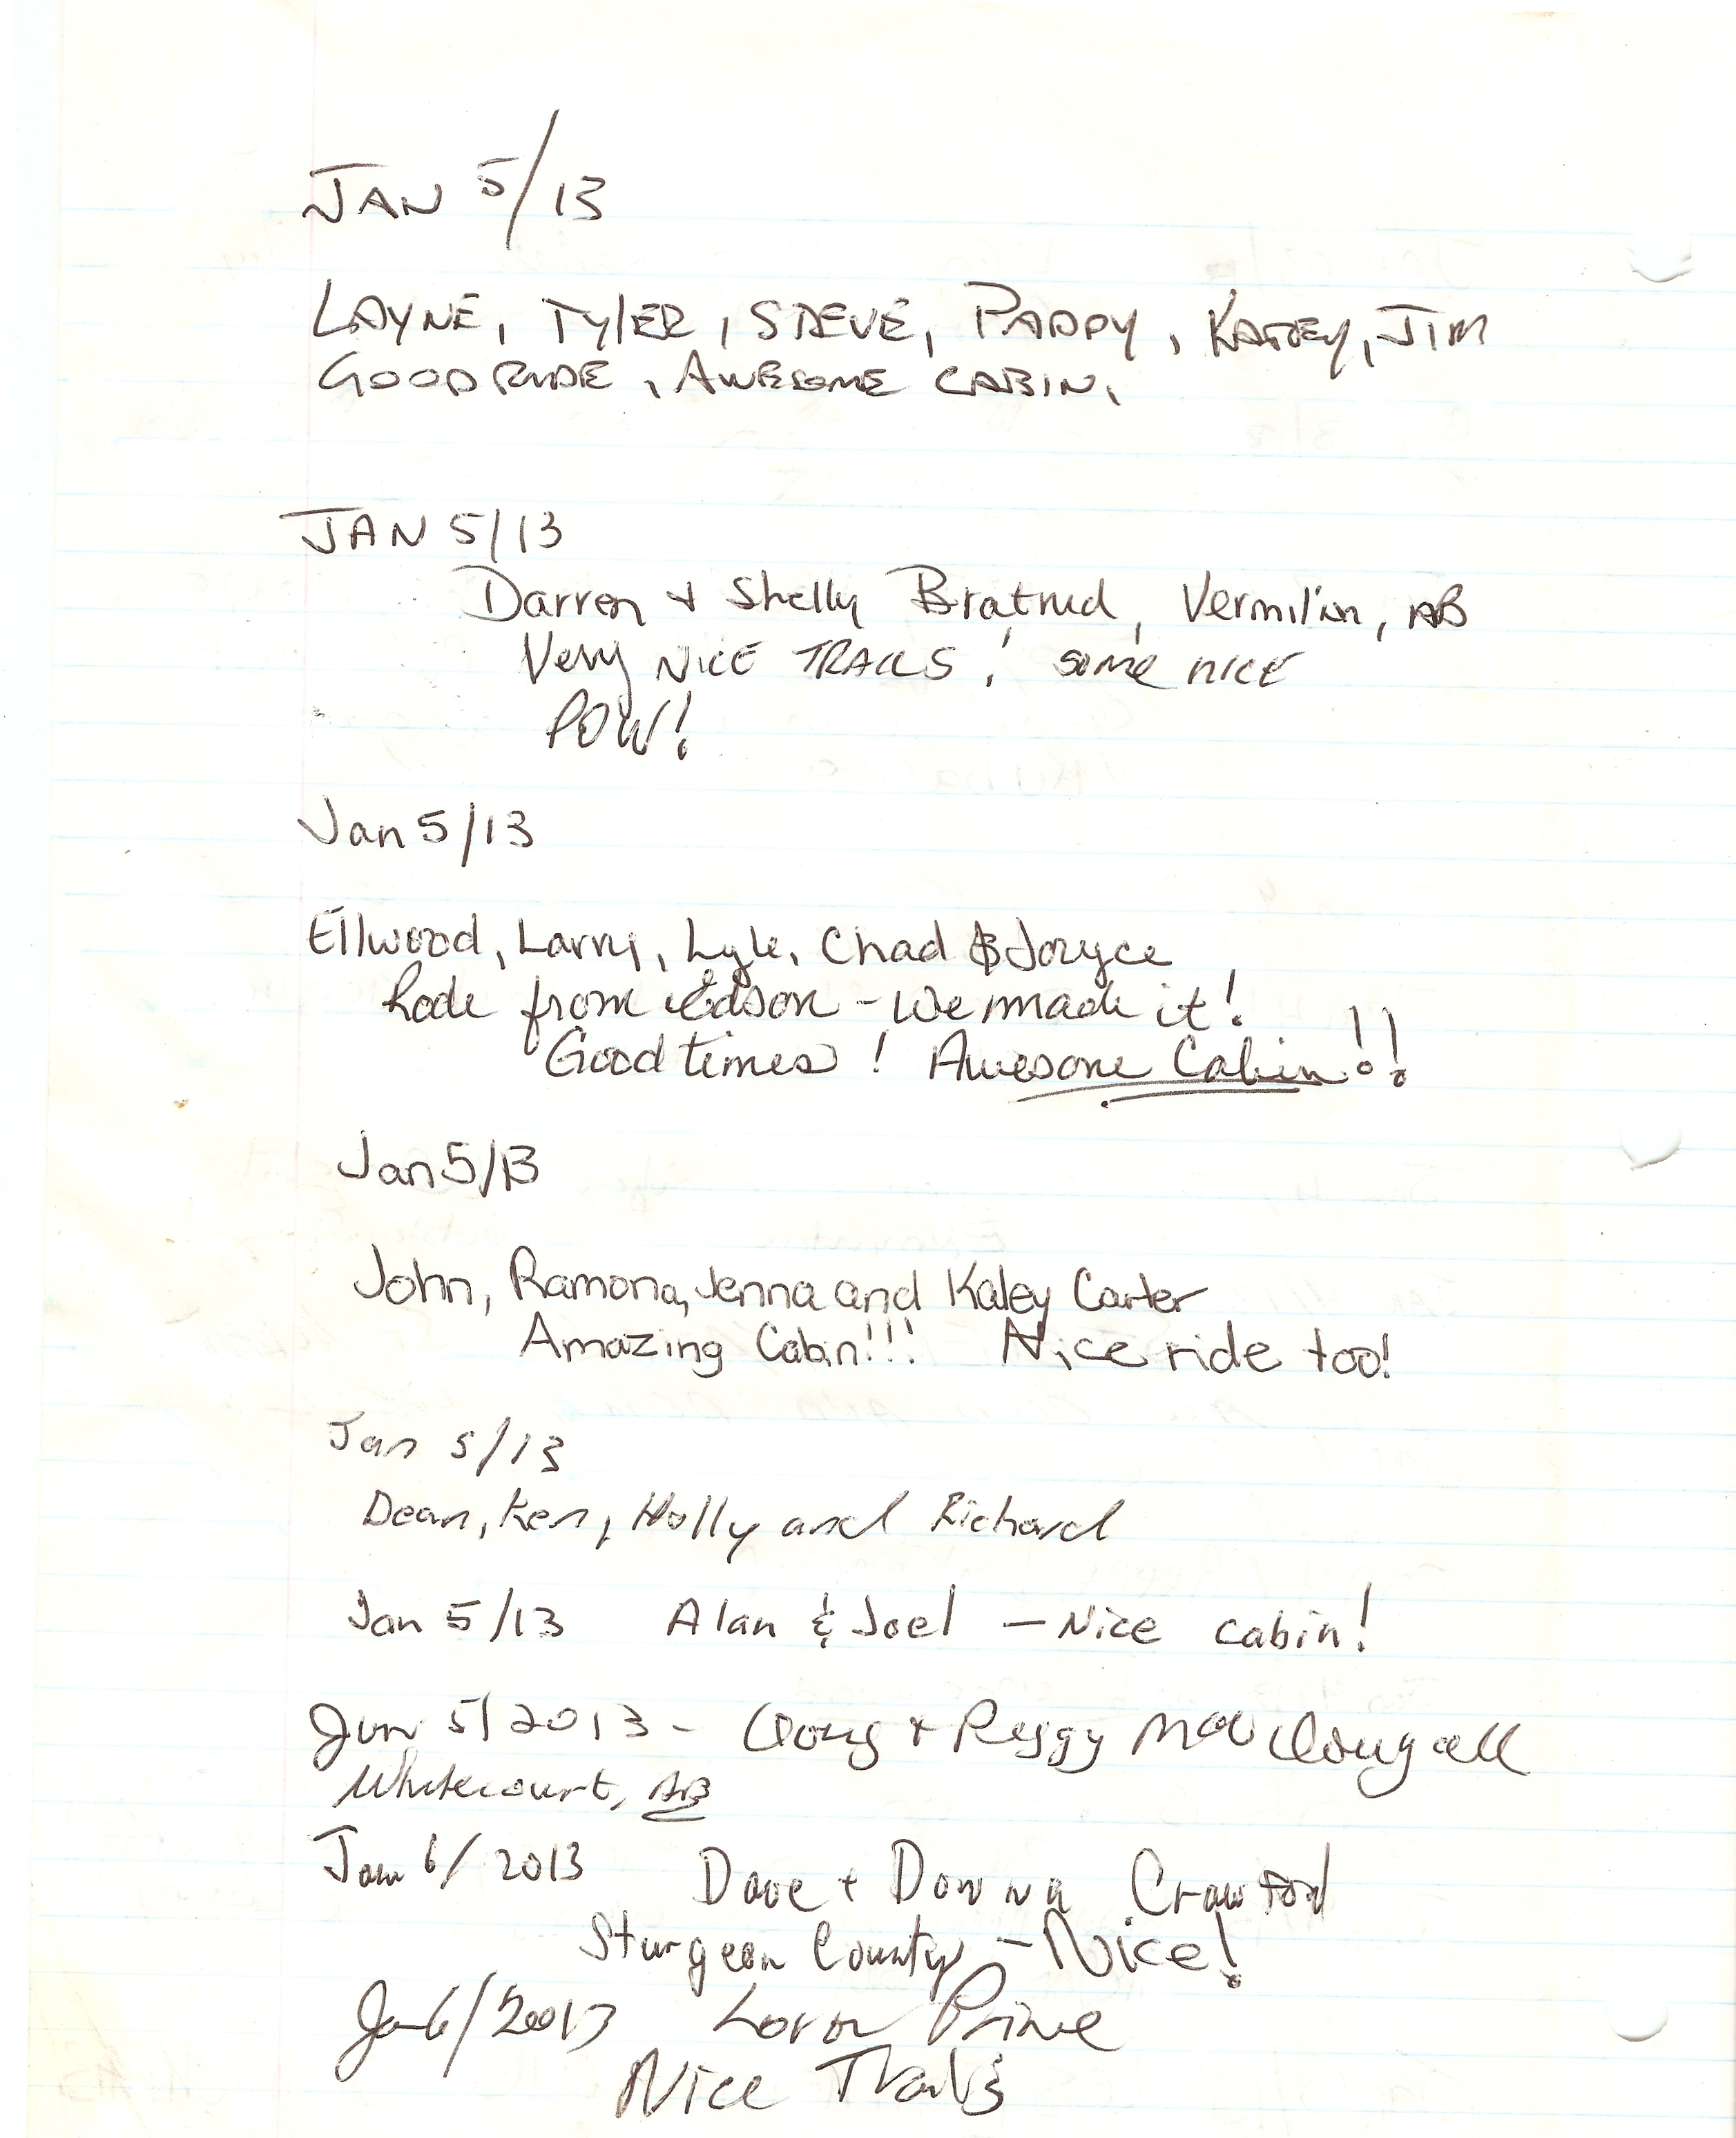 JAN 5/13
LAYNE, TYLER, STEVE, PADDY, KATEY, JIM
GOOD RIDE, AWESOME CABIN.
JAN 5/13
Darren + Shelly Bratrud, Vermilion, AB
Very NICE TRAILS! some nice
POW!
Jan 5/13
Ellwood, Larry, Lyle, Chad & Joryce
Rode from Edson - We made it!
Good times! Awesome Cabin!!
Jan 5/13
John, Ramona, Jenna and Kaley Carter
Amazing Cabin!!! Nice ride too!
Jan 5/13
Dean, Ken, Holly and Richard
Jan 5/13 Alan & Joel - Nice cabin!
Jan 5/2013 - Doug + Peggy MacDougall
Whitecourt, AB
Jan 6/2013 Dave + Donna Crawford
Sturgeon County - Nice!
Jan 6/2013 Lorne Prime
Nice Trails